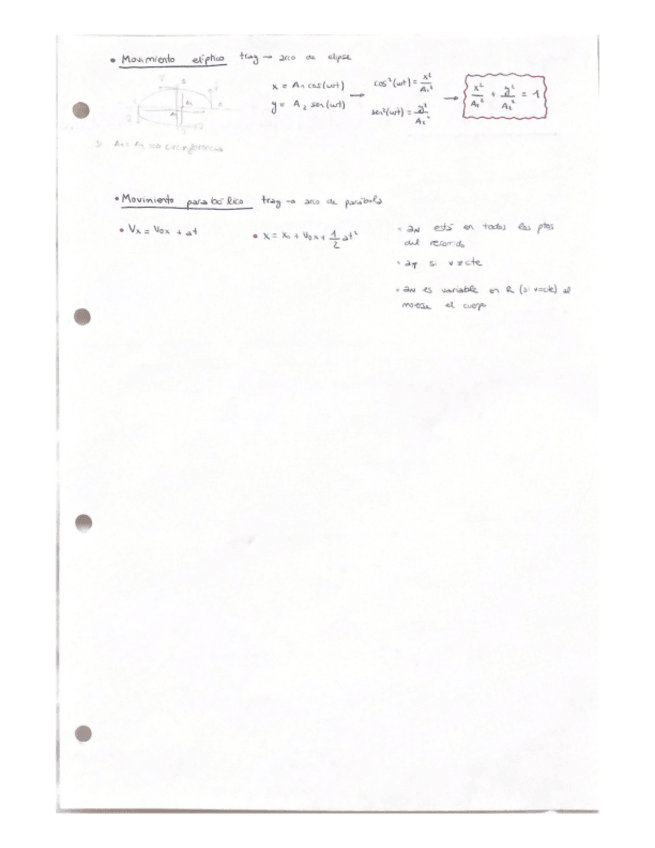 • Movimiento elíptico tray → arco de elipse
x = A₁ cos(wt)
y = A₂ sen(wt)
→
cos²(wt) = x²/A₁²
sen²(wt) = y²/A₂²
→
x²/A₁² + y²/A₂² = 1
Si A₁ = A₂ ⇒ circunferencia
• Movimiento parabólico tray → arco de parábola
• Vx = V0x + at
• x = x₀ + V0x + 1/2 at²
- aN está en todos los ptos
del recorrido
- aT si v≠cte
- aN es variable en R (si v=cte) al
moverse el cuerpo